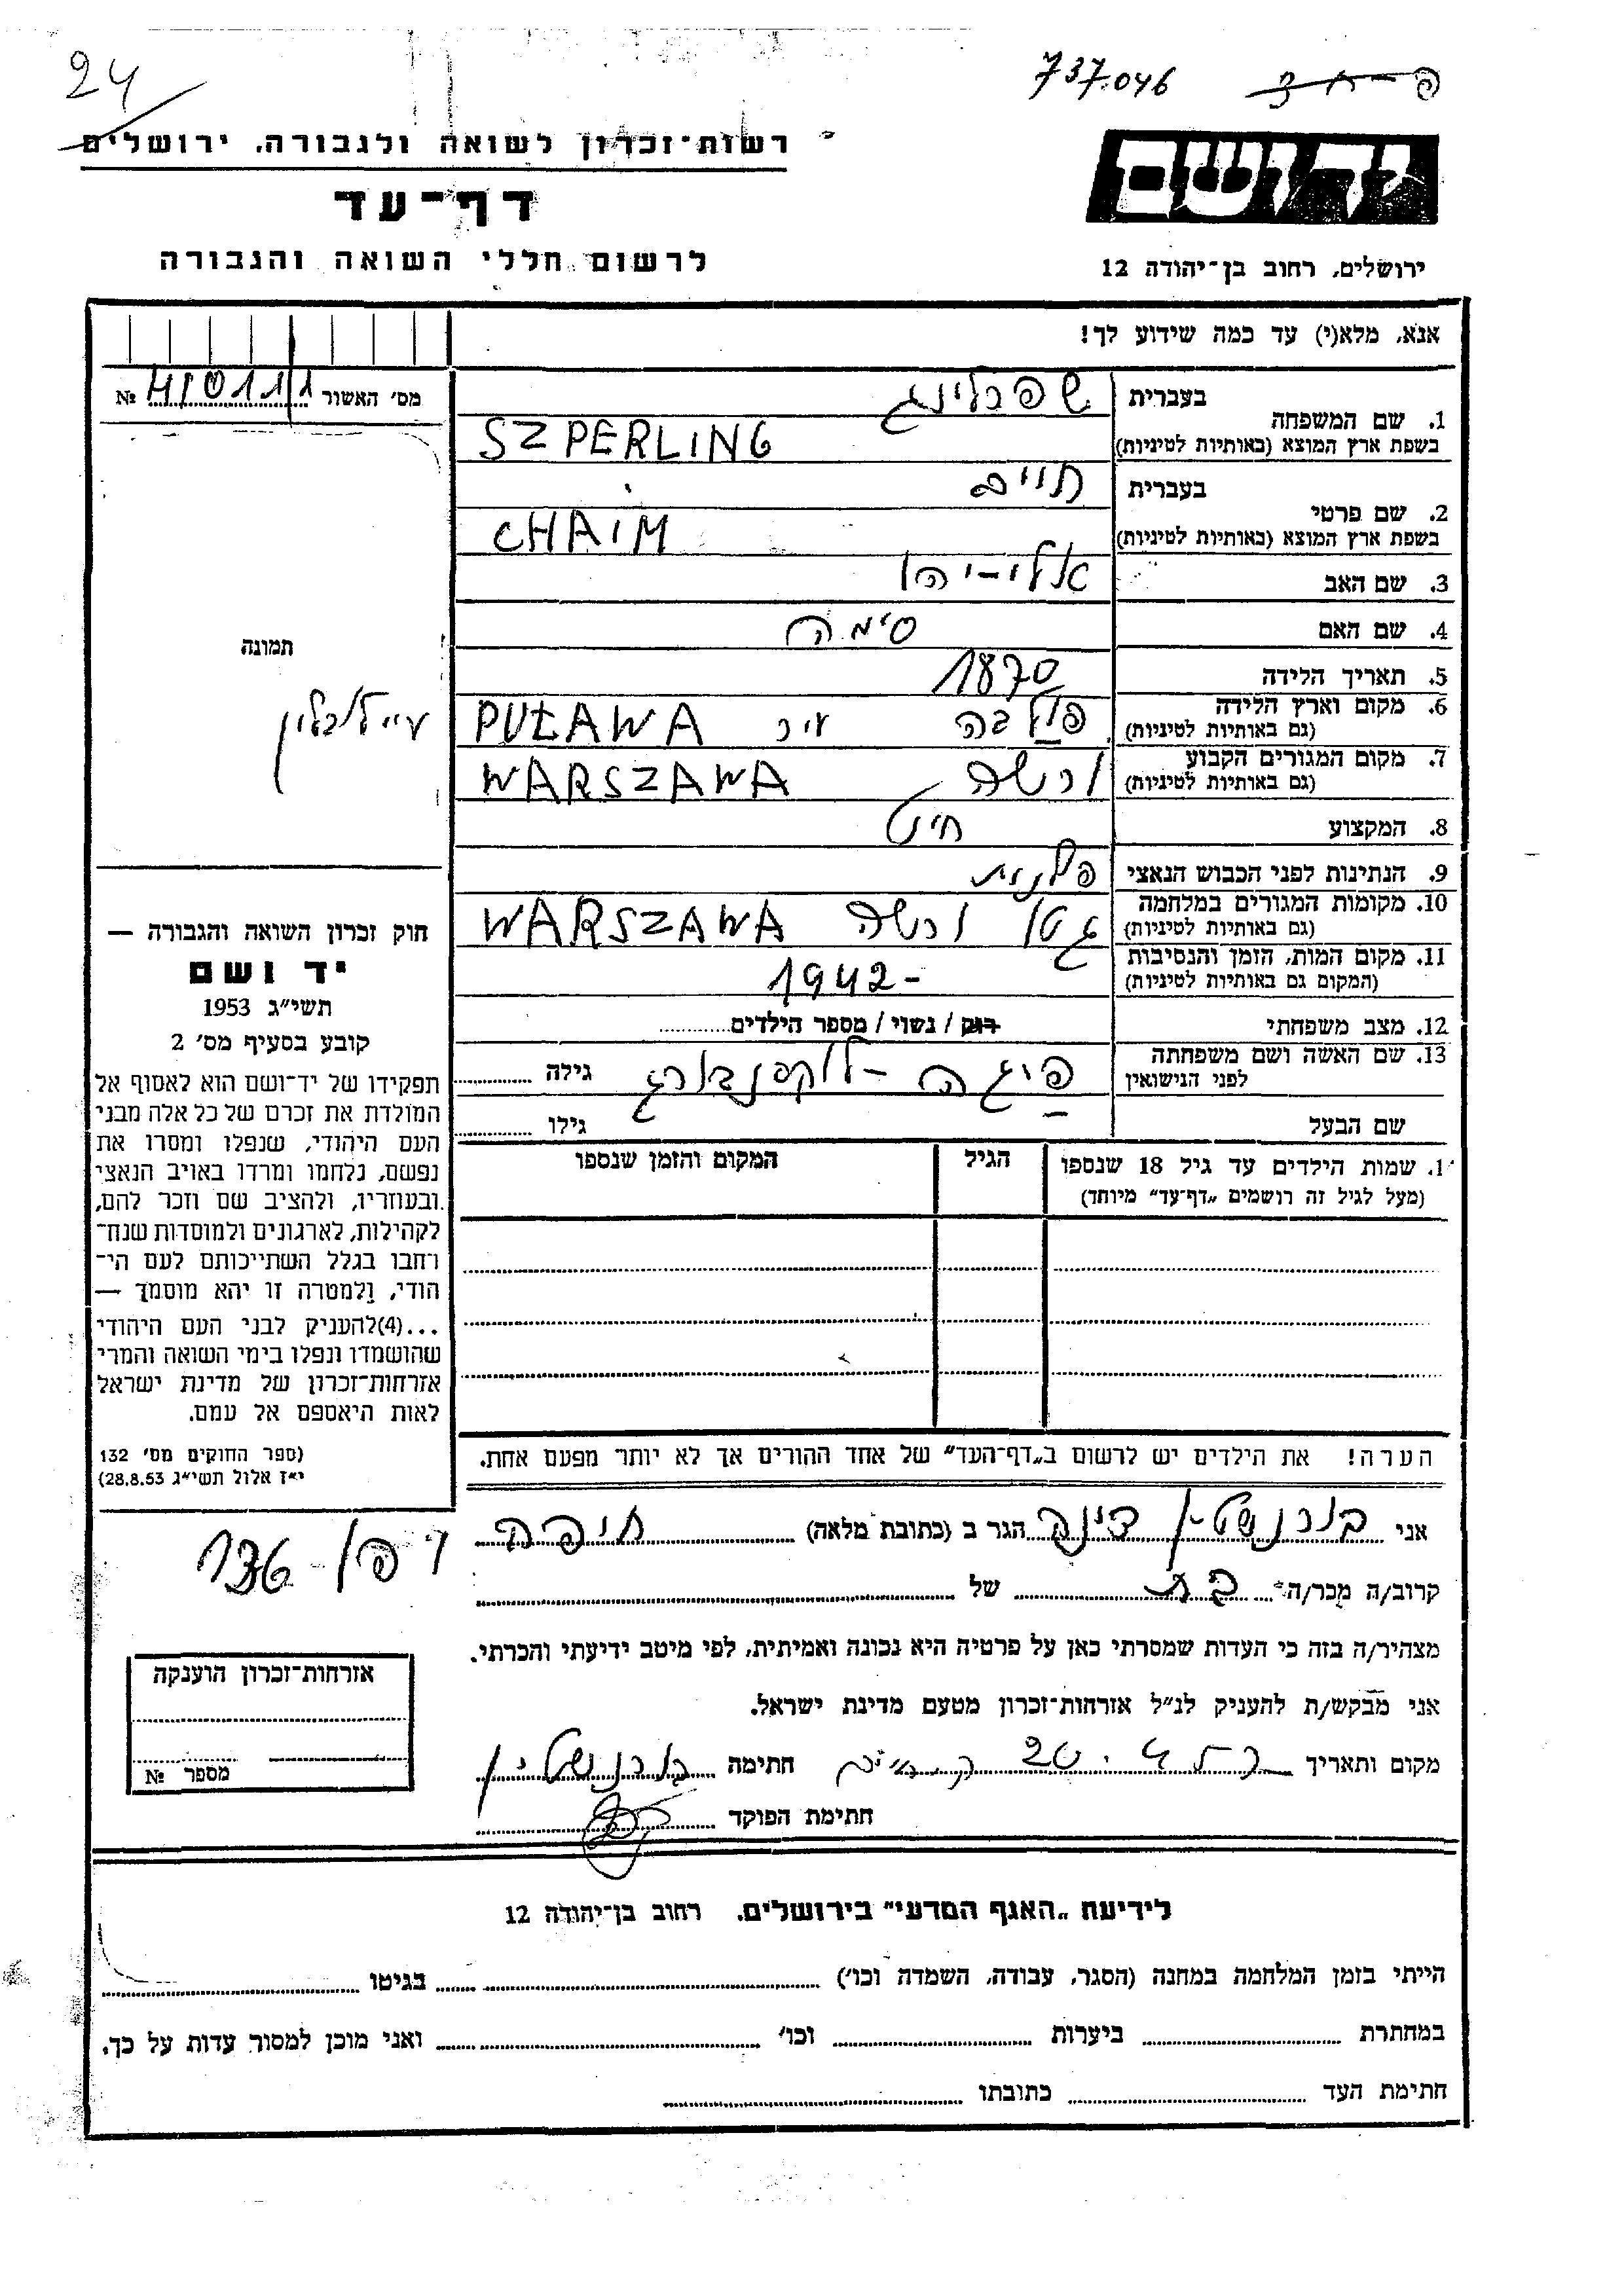 24
737.046
רשות־זכרון לשואה ולגבורה, ירושלים
דף־עד
לרשום חללי השואה והגבורה
ידושם
ירושלים, רחוב בן־יהודה 12
אנא, מלא(י) עד כמה שידוע לך!
מס' האשור №
1. שם המשפחה
בעברית שפרלינג
בשפת ארץ המוצא (באותיות לטיניות) SZPERLING
2. שם פרטי
בעברית חיים
בשפת ארץ המוצא (באותיות לטיניות) CHAIM
3. שם האב אלי-יהו
4. שם האם סימה
5. תאריך הלידה 1870
6. מקום וארץ הלידה פולבה עיר PUŁAWA
(גם באותיות לטיניות)
7. מקום המגורים הקבוע ורשה WARSZAWA
(גם באותיות לטיניות)
8. המקצוע חיט
9. הנתינות לפני הכבוש הנאצי פולנית
10. מקומות המגורים במלחמה גטו ורשה WARSZAWA
(גם באותיות לטיניות)
11. מקום המות, הזמן והנסיבות 1942-
(המקום גם באותיות לטיניות)
12. מצב משפחתי רוק / נשוי / מספר הילדים
13. שם האשה ושם משפחתה פיגה - לוקסנבורג גילה
לפני הנישואין
שם הבעל גילו
תמונה
חוק זכרון השואה והגבורה —
יד ושם
תשי״ג 1953
קובע בסעיף מס' 2
תפקידו של יד־ושם הוא לאסוף אל
המולדת את זכרם של כל אלה מבני
העם היהודי, שנפלו ומסרו את
נפשם, נלחמו ומרדו באויב הנאצי
ובעוזריו, ולהציב שם וזכר להם,
לקהילות, לארגונים ולמוסדות שנח־
רחבו בגלל השתייכותם לעם הי־
הודי, ולמטרה זו יהא מוסמך —
...(4)להעניק לבני העם היהודי
שהושמדו ונפלו בימי השואה והמרי
אזרחות־זכרון של מדינת ישראל
לאות היאספם אל עמם.
(ספר החוקים מס' 132
י״ז אלול תשי״ג 28.8.53)
1. שמות הילדים עד גיל 18 שנספו הגיל המקום והזמן שנספו
(מעל לגיל זה רושמים „דף־עד״ מיוחד)
הערה! את הילדים יש לרשום ב„דף־העד״ של אחד ההורים אך לא יותר מפעם אחת.
אני בורנשטין דינה הגר ב (כתובת מלאה) חיפה
קרוב/ה מכר/ה בת של
מצהיר/ה בזה כי העדות שמסרתי כאן על פרטיה היא נכונה ואמיתית, לפי מיטב ידיעתי והכרתי.
אני מבקש/ת להעניק לנ״ל אזרחות־זכרון מטעם מדינת ישראל.
מקום ותאריך חתימה בורנשטין
חתימת הפוקד
אזרחות־זכרון הוענקה
מספר №
לידיעת „האגף המדעי״ בירושלים, רחוב בן־יהודה 12
הייתי בזמן המלחמה במחנה (הסגר, עבודה, השמדה וכו') בגיטו
במחתרת ביערות וכו' ואני מוכן למסור עדות על כך.
חתימת העד כתובתו